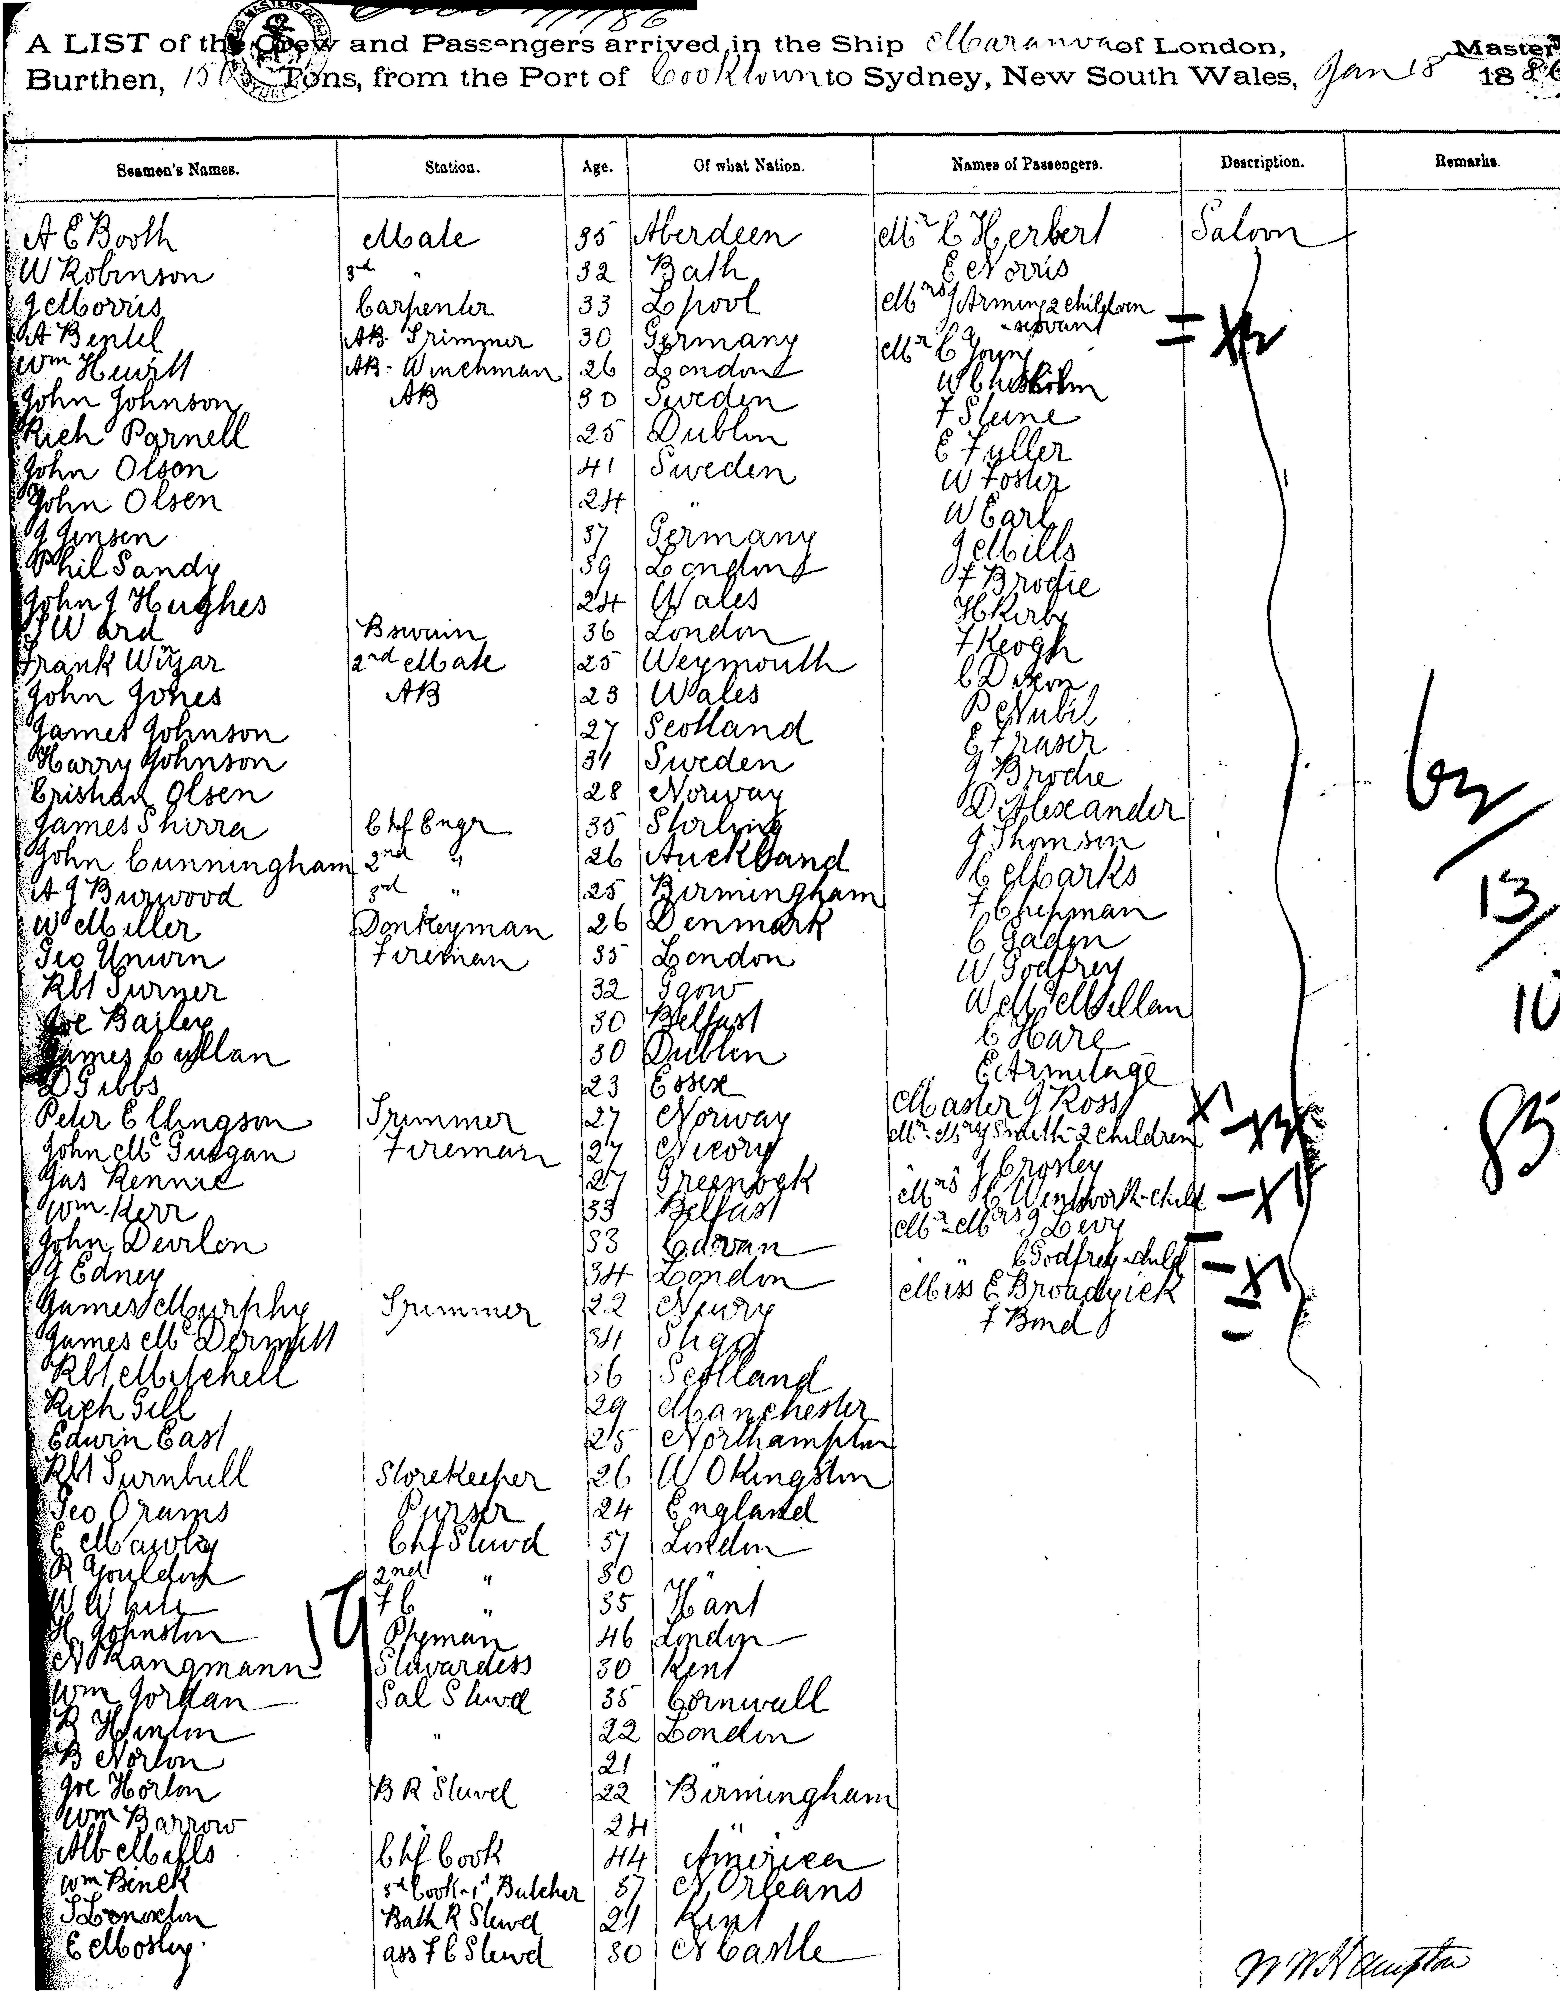 A LIST of the Crew and Passengers arrived in the Ship Maranoa of London, Master
Burthen, 150 Tons, from the Port of Cooktown to Sydney, New South Wales, Jan 18 1886
Seamen's Names. Station. Age. Of what Nation. Names of Passengers. Description. Remarks.
A E Booth Mate 35 Aberdeen Mr C Herbert Saloon
W Robinson 3rd " 32 Bath E Norris
J Morris Carpenter 33 Lpool Mrs J Arming 2 children
- servant
A Bentel AB Trimmer 30 Germany Mr C Young
Wm Hewitt AB - Winchman 26 London W Chisholm
John Johnson AB 30 Sweden F Steine
Rich Parnell 25 Dublin E Fuller
John Olson 41 Sweden W Foster
John Olsen 24 " W Earl
J Jensen 37 Germany J Mills
Phil Sandy 39 London F Brodie
John J Hughes 24 Wales H Kirby
S Ward Bswain 36 London F Keogh
Frank Wizar 2nd Mate 25 Weymouth C Dixon
John Jones AB 23 Wales P Nubil
James Johnson 27 Scotland E Fraser
Harry Johnson 31 Sweden J Brodie
Crishan Olsen 28 Norway D Alexander
James Shirra Chf Engr 35 Stirling J Thomson
John Cunningham 2nd " 26 Auckland C Marks
A J Burwood 3rd " 25 Birmingham F Chepman
W Miller Donkeyman 26 Denmark C Gaden
Geo Unwin Fireman 35 London W Godfrey
Rbt Turner 32 Ggow W McMillan
Joe Bailey 30 Belfast C Hare
James Cullan 30 Dublin E Armitage
D Gibbs 23 Essex Master J Ross
Peter Ellingson Trimmer 27 Norway Mr - Mrs J Smith - 2 children
John McGuigan Fireman 27 Newry J Crosley
Jas Rennie 27 Greenock Mrs C Wentworth - child
Wm Kerr 33 Belfast Mr - Mrs J Levy
John Devrlon 33 Cavan " " C Godfrey - child
J Edney 34 London Miss E Broadyick
James Murphy Trimmer 22 Newry F Bond
James McDermott 34 Sligo
Rbt Mitchell 36 Scotland
Rich Gill 29 Manchester
Edwin East 25 Northampton
Rbt Turnbull Storekeeper 26 W O Kingston
Geo Orams Purser 24 England
E Mawby Chf Stewd 57 London
R Gouldon 2nd " 30 "
W White F C " 35 Hant
H Johnston Ptyman 46 London
N Kangmann Stewardess 30 Kent
Wm Jordan Sal Stewd 35 Cornwall
R Hinton " 22 London
B Norton 21 "
Joe Horton B R Stewd 22 Birmingham
Wm Barrow " 24 "
Alb Mills Chf Cook 44 America
Wm Binek 3rd Cook - 1st Butcher 37 N Orleans
Bath R Stewd 21 Kent
E Mosley ass F C Stewd 30 N Castle
62
13
10
85
W W Hampton